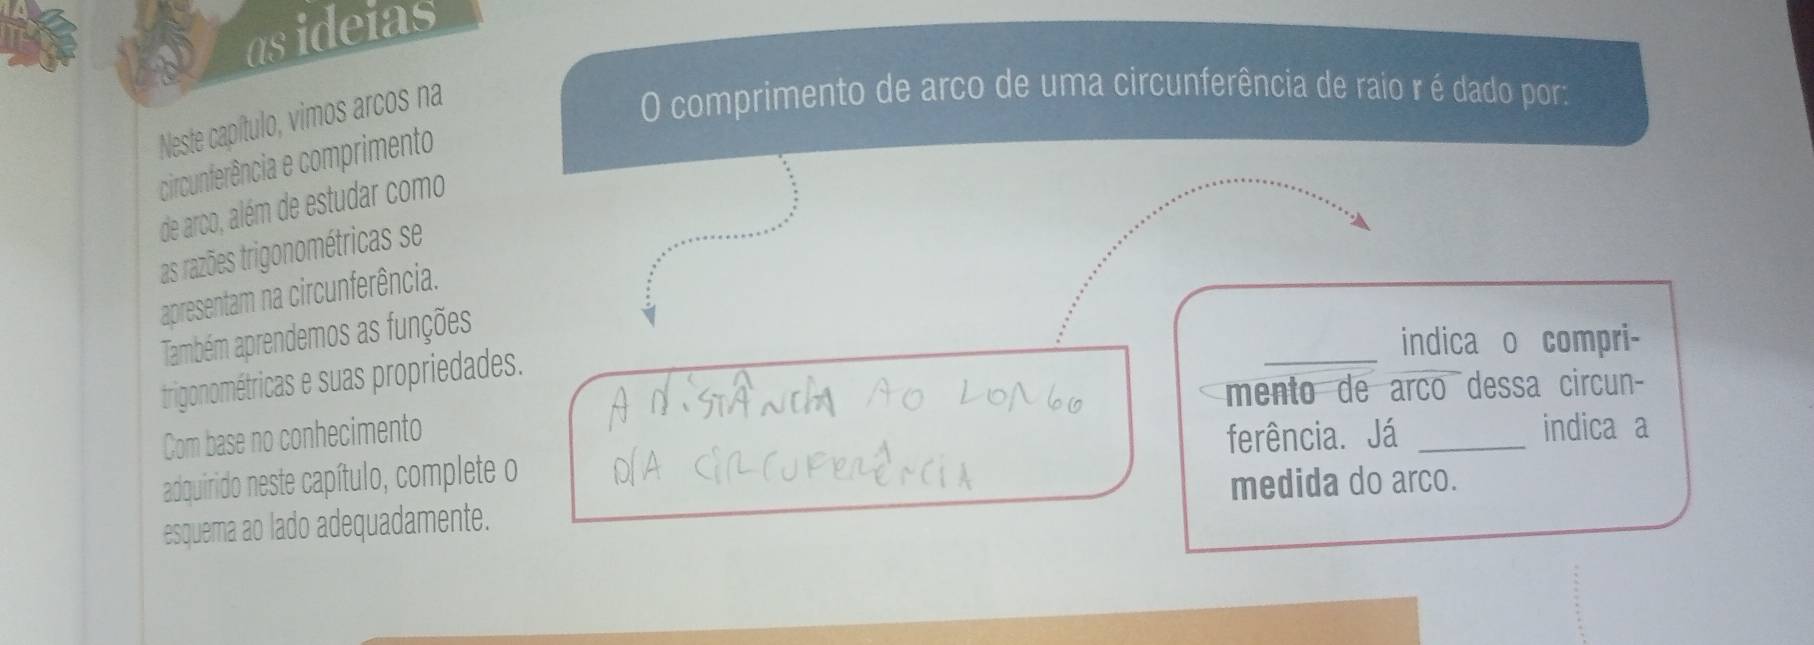 as ideias
Neste capítulo, vimos arcos na
circunferência e comprimento
de arco, além de estudar como
as razões trigonométricas se
apresentam na circunferência.
Também aprendemos as funções
trigonométricas e suas propriedades.
Com base no conhecimento
adquirido neste capítulo, complete o
esquema ao lado adequadamente.
O comprimento de arco de uma circunferência de raio r é dado por:
A DISTÂNCIA AO LONGO
DA CIRCUFERÊNCIA
______ indica o compri-
mento de arco dessa circun-
ferência. Já ______ indica a
medida do arco.